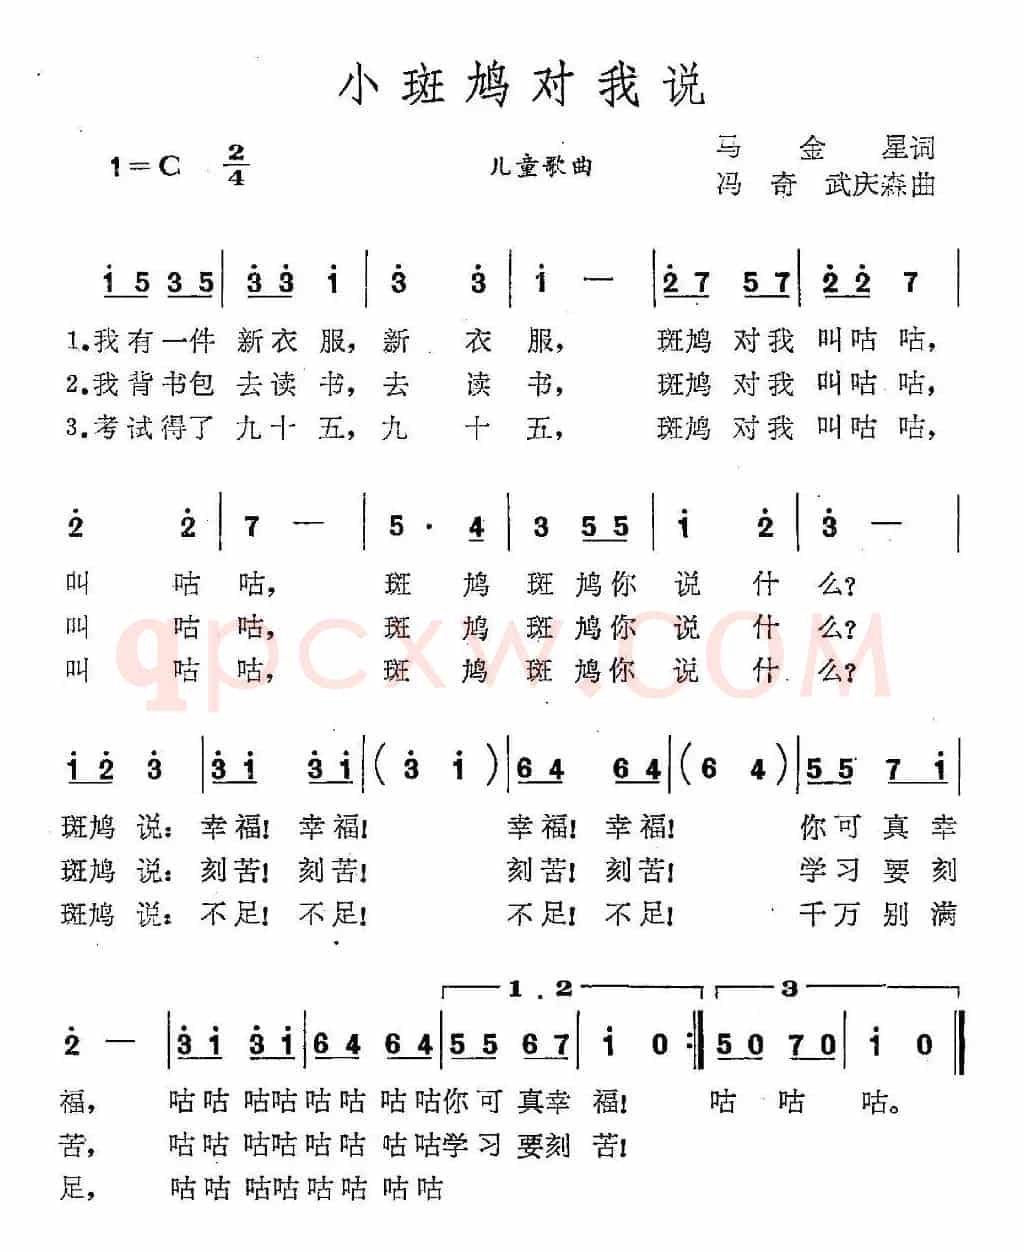 小斑鸠对我说
1=C 2/4 儿童歌曲 马金星词
冯奇 武庆森曲
i 5 3 5 | 3̇ 3̇ i | 3̇ 3̇ | i — | 2̇ 7 5 7 | 2̇ 2̇ 7 |
1.我有一件 新衣服,新 衣 服, 斑鸠 对我 叫咕咕,
2.我背书包 去读书,去 读 书, 斑鸠 对我 叫咕咕,
3.考试得了 九十五,九 十 五, 斑鸠 对我 叫咕咕,
2̇ 2̇ | 7 — | 5 · 4 | 3 5 5 | i 2̇ | 3̇ — |
叫 咕 咕, 斑 鸠 斑 鸠你 说 什 么?
叫 咕 咕, 斑 鸠 斑 鸠你 说 什 么?
叫 咕 咕, 斑 鸠 斑 鸠你 说 什 么?
qpcxw.COM
i 2̇ 3̇ | 3̇ i 3̇ i | (3̇ i) | 6 4 6 4 | (6 4) | 5 5 7 i |
斑鸠 说: 幸福! 幸福! 幸福! 幸福! 你可 真幸
斑鸠 说: 刻苦! 刻苦! 刻苦! 刻苦! 学习 要刻
斑鸠 说: 不足! 不足! 不足! 不足! 千万 别满
1.2 3
2̇ — | 3̇ i 3̇ i | 6 4 6 4 | 5 5 6 7 | i 0 :| 5 0 7 0 | i 0 ‖
福, 咕咕 咕咕 咕咕 咕咕 你可 真幸 福! 咕 咕 咕。
苦, 咕咕 咕咕 咕咕 咕咕 学习 要刻 苦!
足, 咕咕 咕咕 咕咕 咕咕